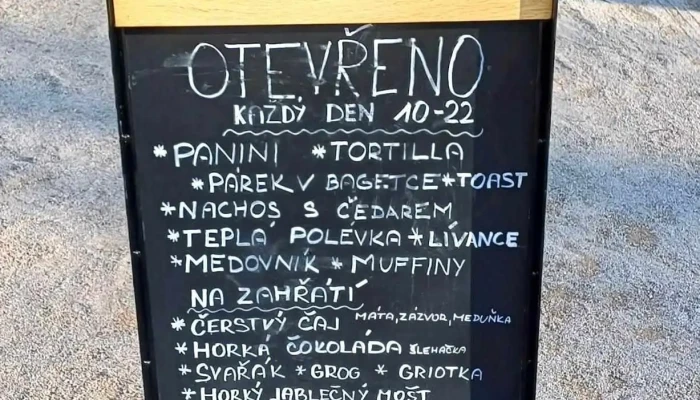 OTEVŘENO
KAŽDÝ DEN 10-22
*PANINI *TORTILLA
*PÁREK V BAGETCE *TOAST
*NACHOS S ČEDAREM
*TEPLÁ POLÉVKA *LÍVANCE
*MEDOVNÍK *MUFFINY
NA ZAHŘÁTÍ
*ČERSTVÝ ČAJ MÁTA, ZÁZVOR, MEDUŇKA
*HORKÁ ČOKOLÁDA ŠLEHAČKA
*SVAŘÁK *GROG *GRIOTKA
*HORKÝ JABLEČNÝ MOŠT